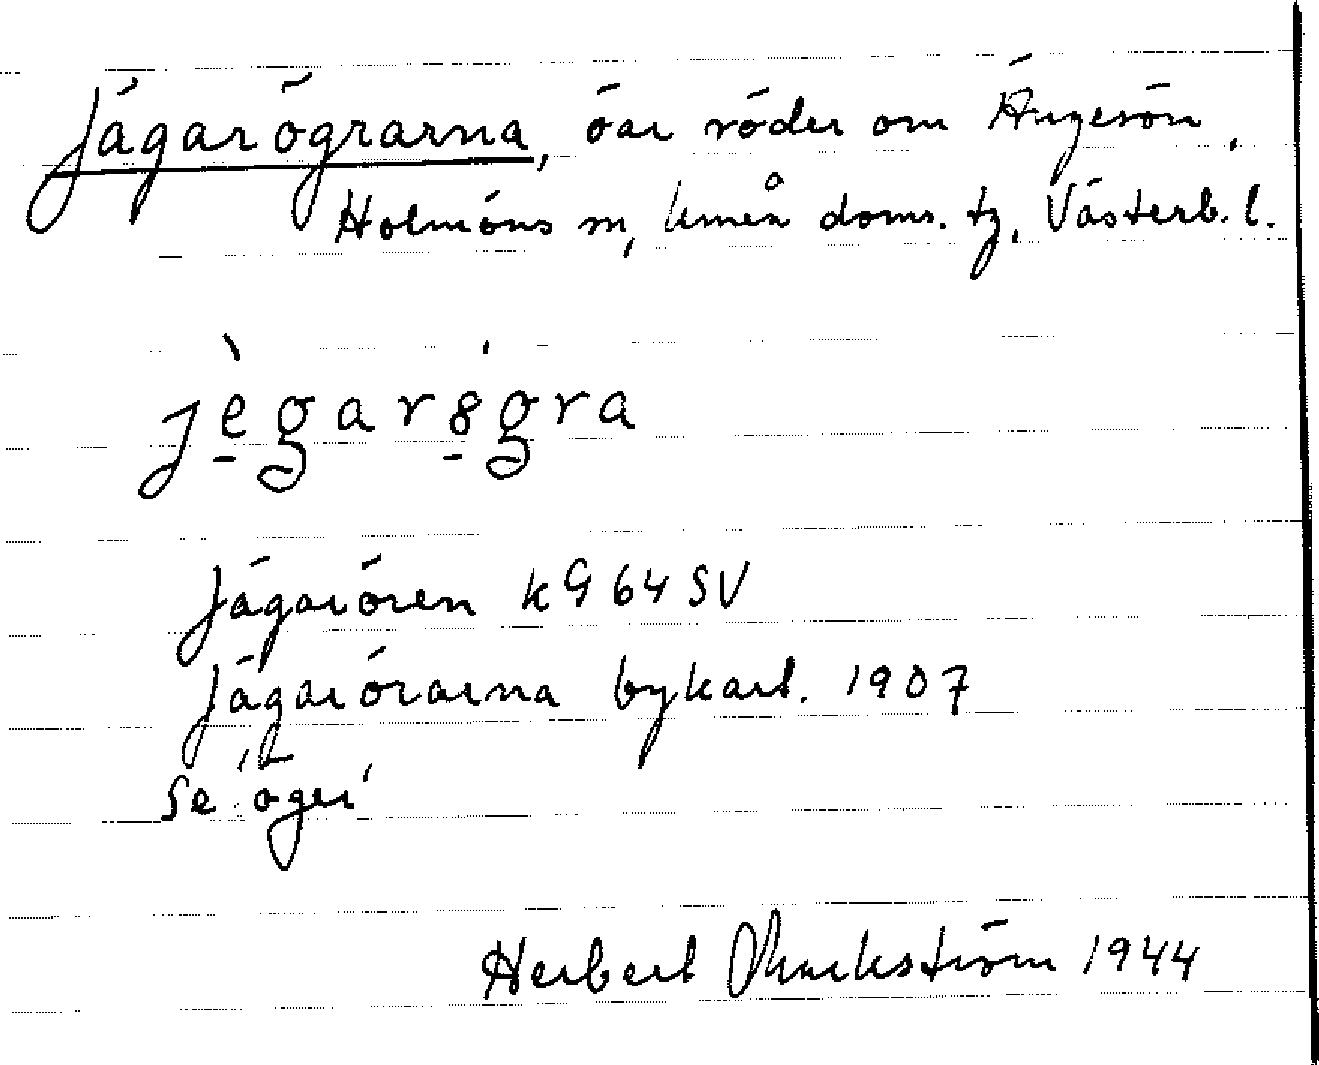 Jägarögrarna, öar söder om Ängesön,
Holmöns sn, Umeå doms. tg, Västerb. l.
jègarögra
Jägarören kG 64 SV
Jägarörarna bykart. 1907
Se 'öger'
Herbert 1944